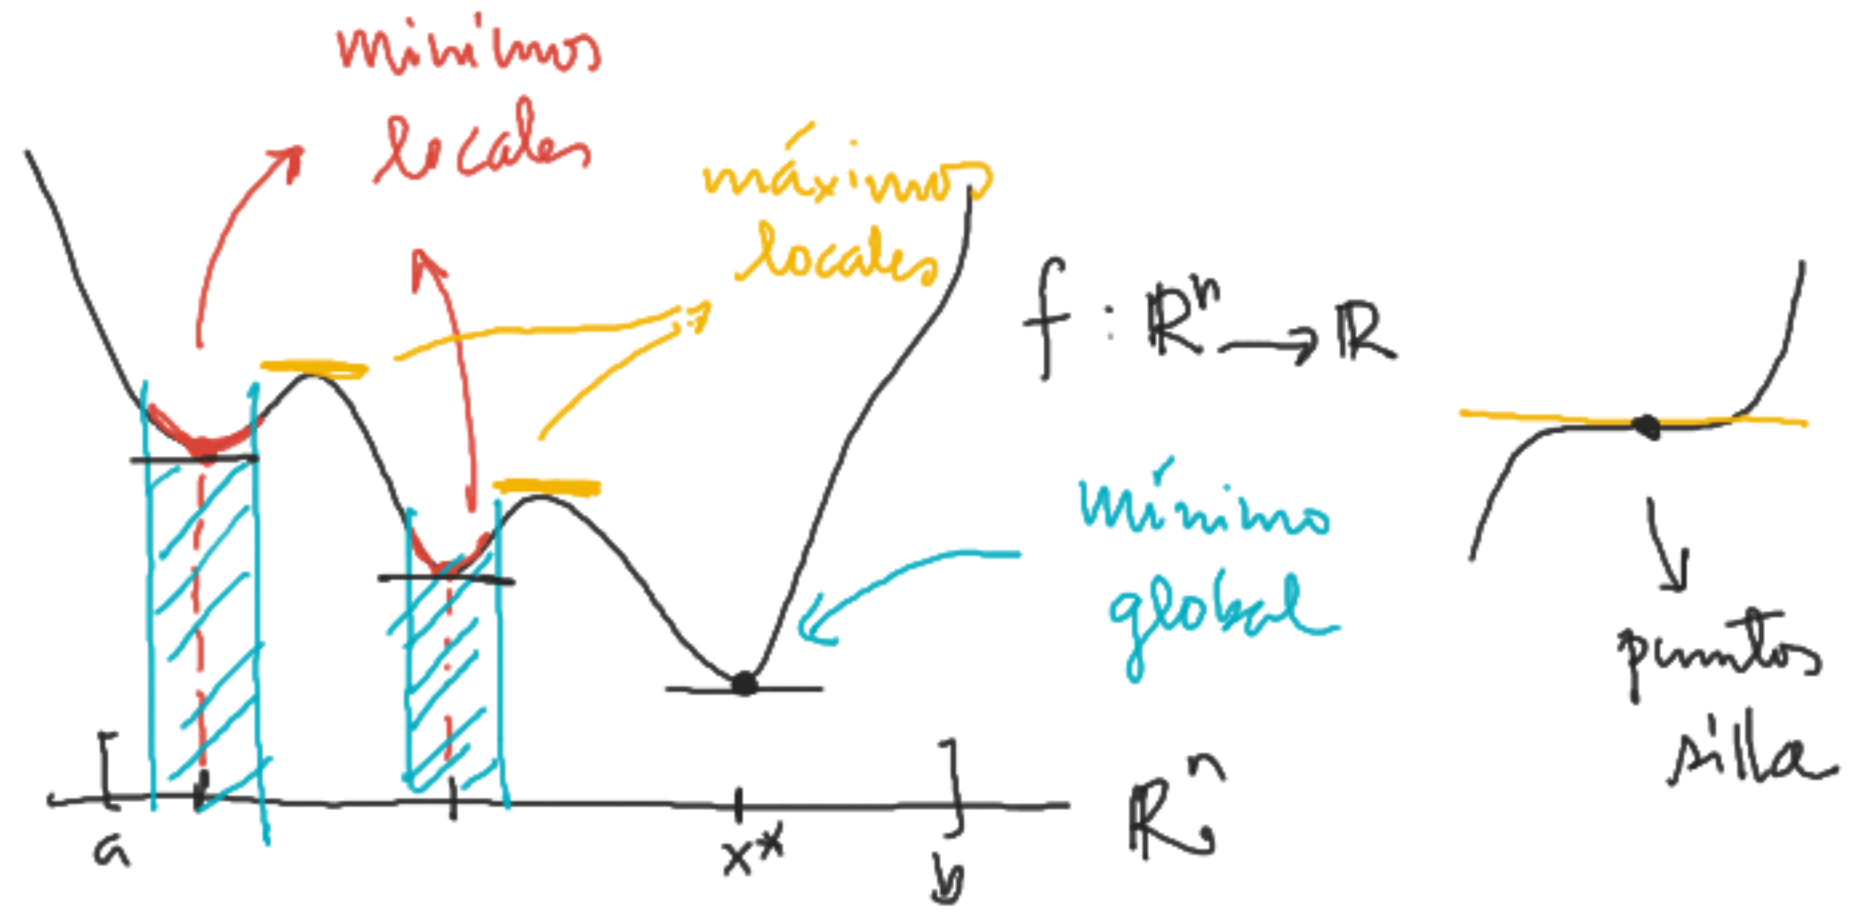 mínimos
locales
máximos
locales
f : ℝⁿ → ℝ
mínimo
global
puntos
silla
[
]
a
x*
b
ℝⁿ